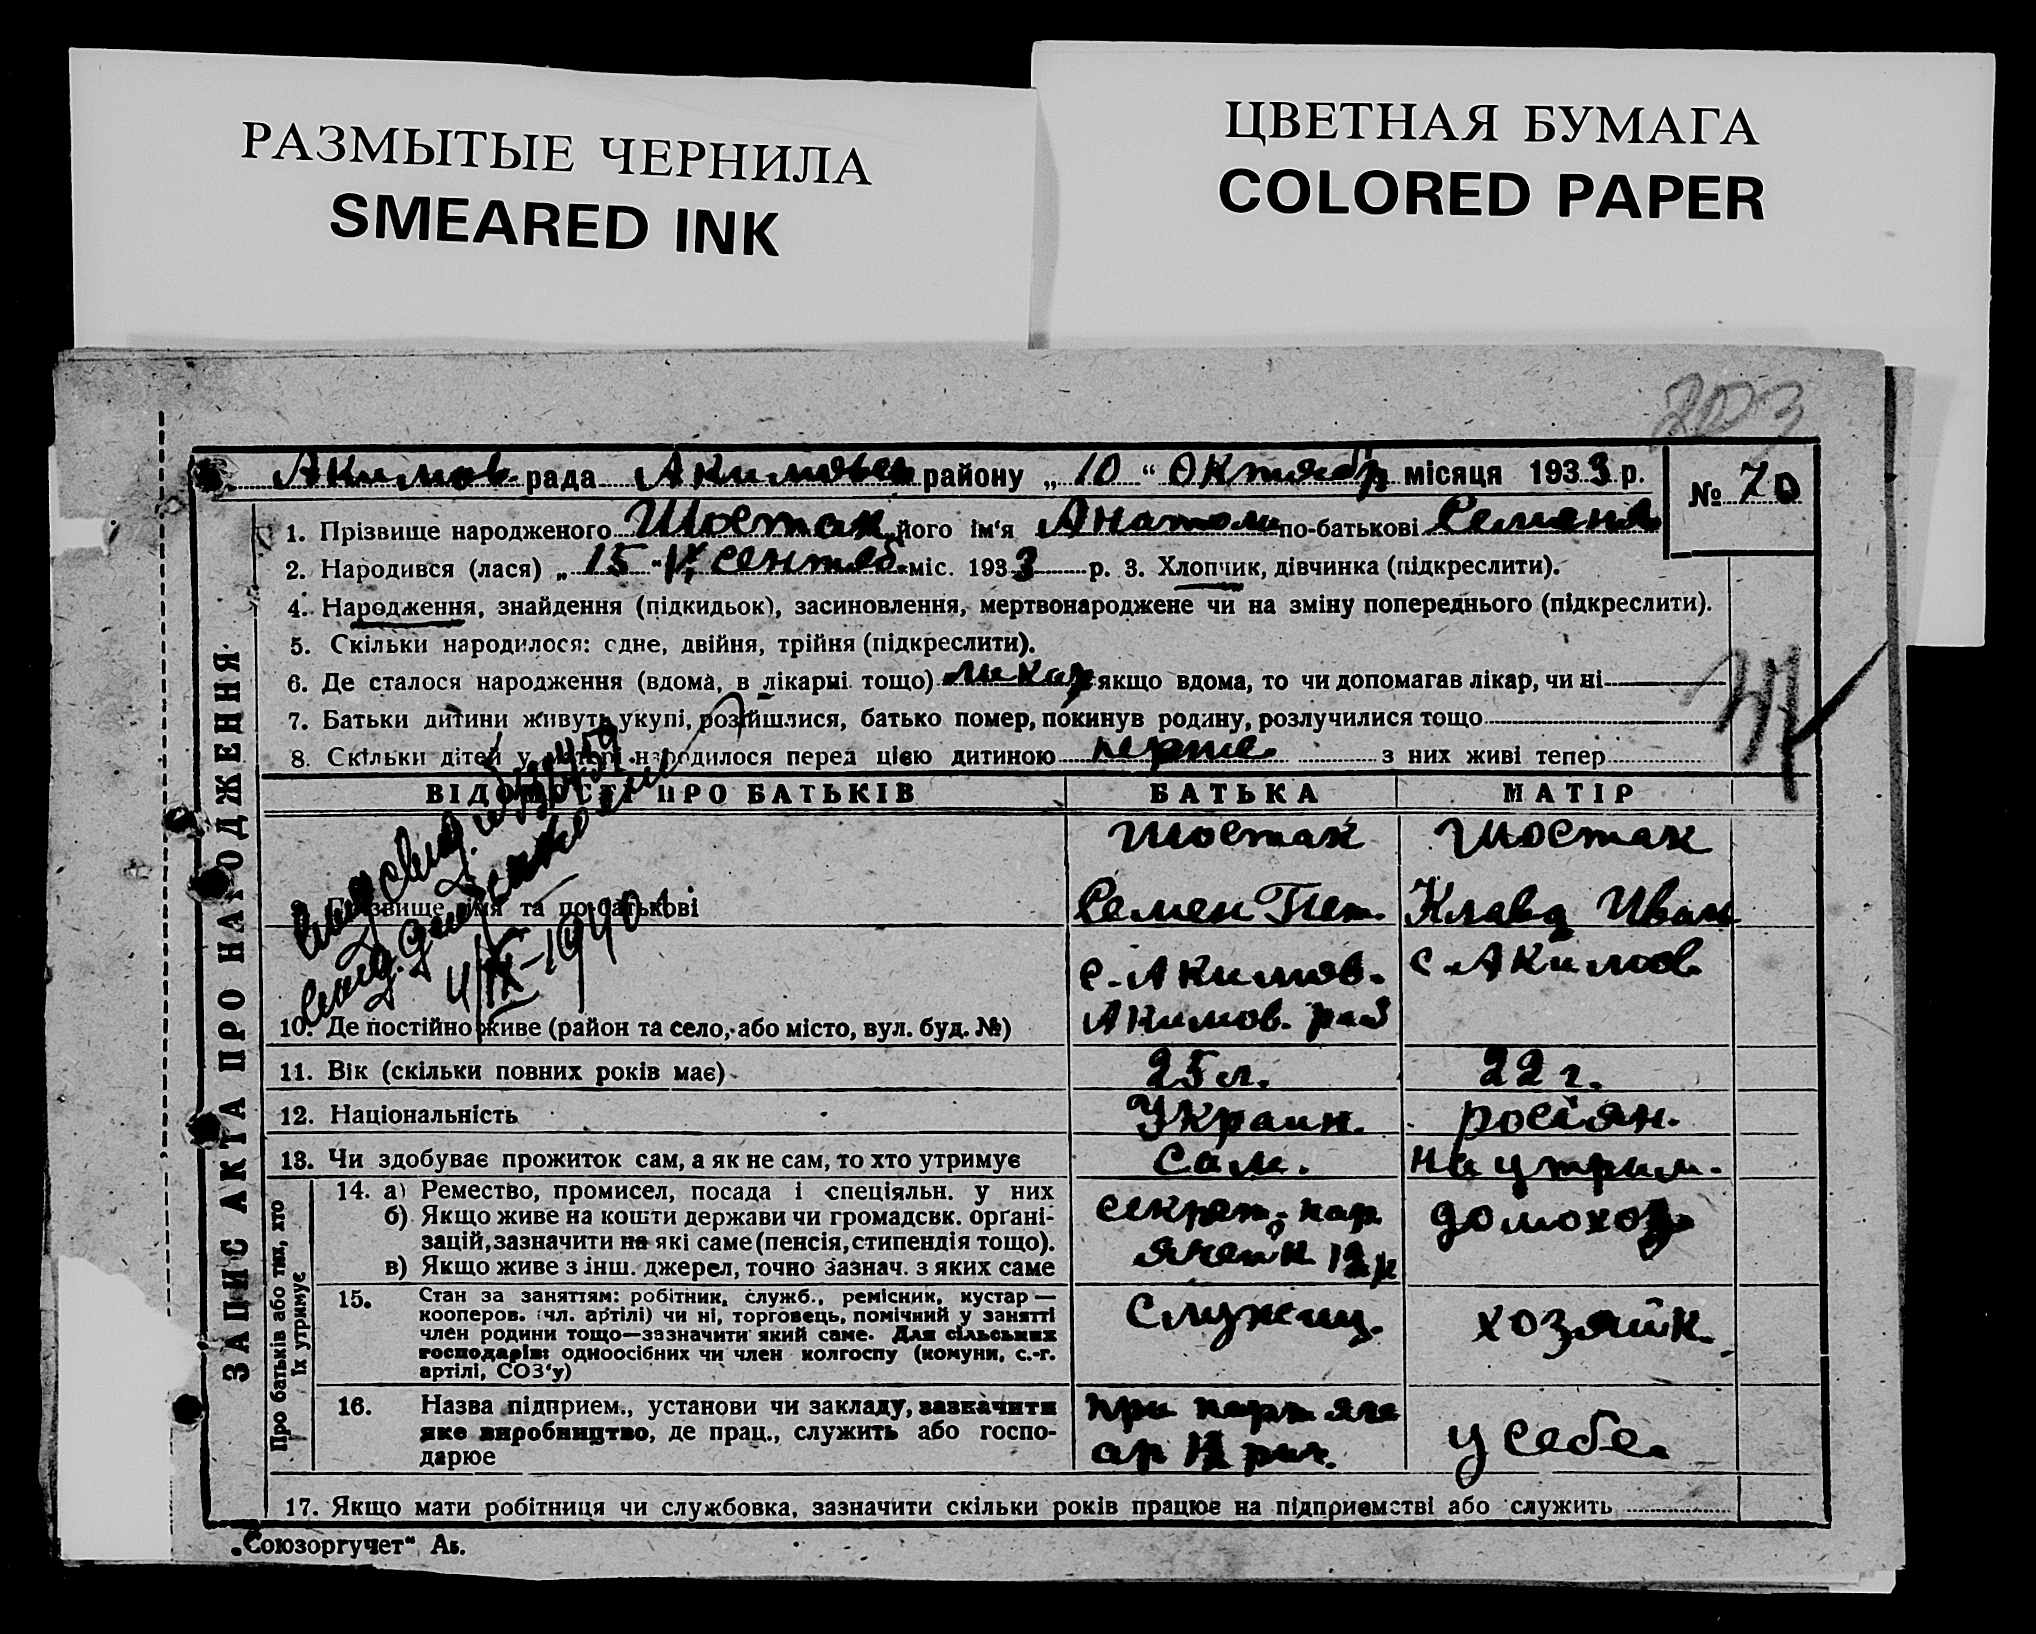 РАЗМЫТЫЕ ЧЕРНИЛА
SMEARED INK
ЦВЕТНАЯ БУМАГА
COLORED PAPER
Акимов. рада Акимовск району „10“ Октябр місяця 1933 р.
№ 70
1. Прізвище народженого Шостак його ім'я Анатоли по-батькові Семенов
2. Народився (лася) „15“ сентяб міс. 1933 р. 3. Хлопчик, дівчинка (підкреслити).
4. Народження, знайдення (підкидьок), засиновлення, мертвонароджене чи на зміну попереднього (підкреслити).
5. Скільки народилося: одне, двійня, трійня (підкреслити).
6. Де сталося народження (вдома, в лікарні тощо) ликар якщо вдома, то чи допомагав лікар, чи ні
7. Батьки дитини живуть укупі, розійшлися, батько помер, покинув родину, розлучилися тощо
8. Скільки дітей у матері народилося перед цією дитиною перше з них живі тепер
ЗАПИС АКТА ПРО НАРОДЖЕННЯ
ВІДОМОСТІ ПРО БАТЬКІВ БАТЬКА МАТІР
Шостак Шостак
9. Прізвище, ім'я та по-батькові Семен Пет. Клавд Иван
4/IX-1940
с. Акимов. с Акимов.
10. Де постійно живе (район та село, або місто, вул. буд. №) Акимов. рай
11. Вік (скільки повних років має) 25 л. 22 г.
12. Національність Украин. росіян.
13. Чи здобуває прожиток сам, а як не сам, то хто утримує Сам. на утрим.
Про батьків або тих, хто їх утримує
14. а) Ремество, промисел, посада і спеціяльн. у них
б) Якщо живе на кошти держави чи громадсвк. організацій, зазначити на які саме (пенсія, стипендія тощо).
в) Якщо живе з інш. джерел, точно зазнач. з яких саме
секрет. пар домохоз
15. Стан за заняттям: робітник, служб., ремісник, кустар —
кооперов. (чл. артілі) чи ні, торговець, помічний у занятті
член родини тощо—зазначити який саме. Для сільських
господарів: одноосібних чи член колгоспу (комуни, с.-г.
артілі, СОЗ'у)
Служащ. хозяйк.
16. Назва підприєм., установи чи закладу, зазначити
яке виробництво, де прац., служить або госпо-
дарює
при парт у себе.
17. Якщо мати робітниця чи службовка, зазначити скільки років працює на підприємстві або служить
„Союзоргучет“ Аз.